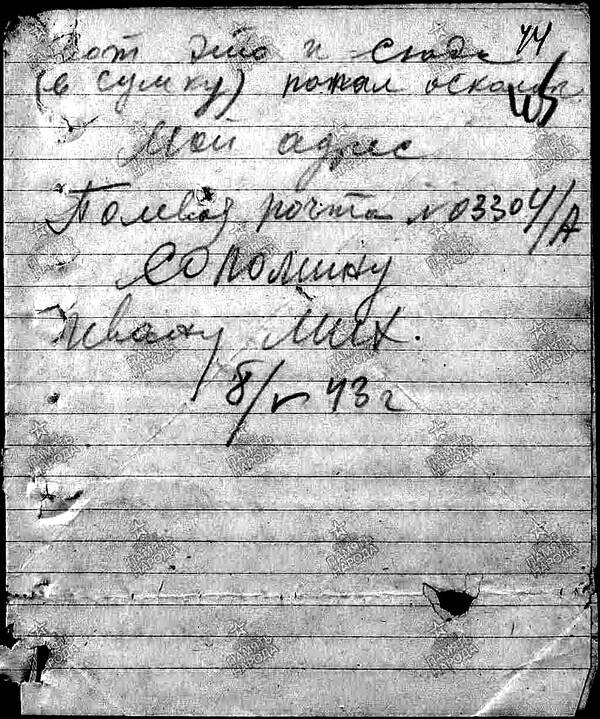 44
Вот это и сюда
(в сумку) попал осколок
Мой адрес
Полевая почта №03304/А
Соломину
Ивану Мих.
8/V 43 г
ПАМЯТЬ НАРОДА